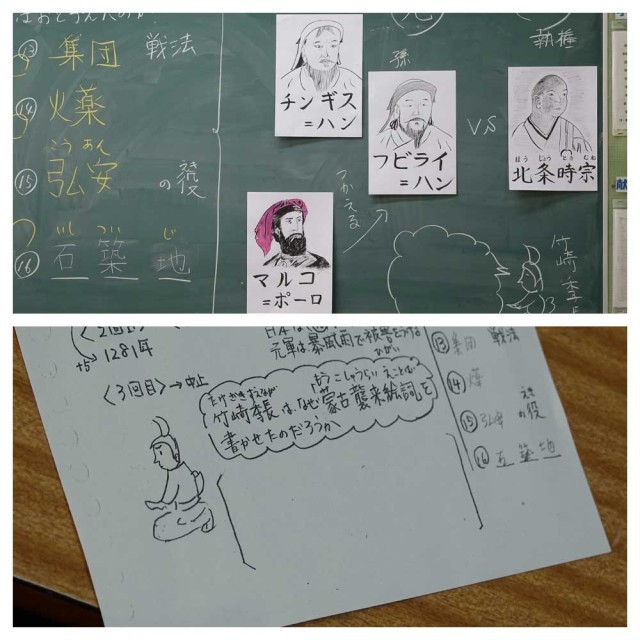 ⑬ 集団 戦法
⑭ 火薬
こうあん
⑮ 弘安 の役
いし つい じ
⑯ 石 築 地
チンギス
=ハン
孫
フビライ
=ハン
VS
執権
ほう じょう とき むね
北条時宗
つかえる
マルコ
=ポーロ
竹崎季長
〈2回目〉
+5
1281年
元軍は暴風雨で被害をうける
ひがい
〈3回目〉→中止
たけざきすえなが もうこしゅうらいえことば
竹崎季長は、なぜ「蒙古襲来絵詞」を
書かせたのだろうか
⑬ 集団 戦法
⑭
えき
⑮ 弘安 の役
⑯ 石 築 地